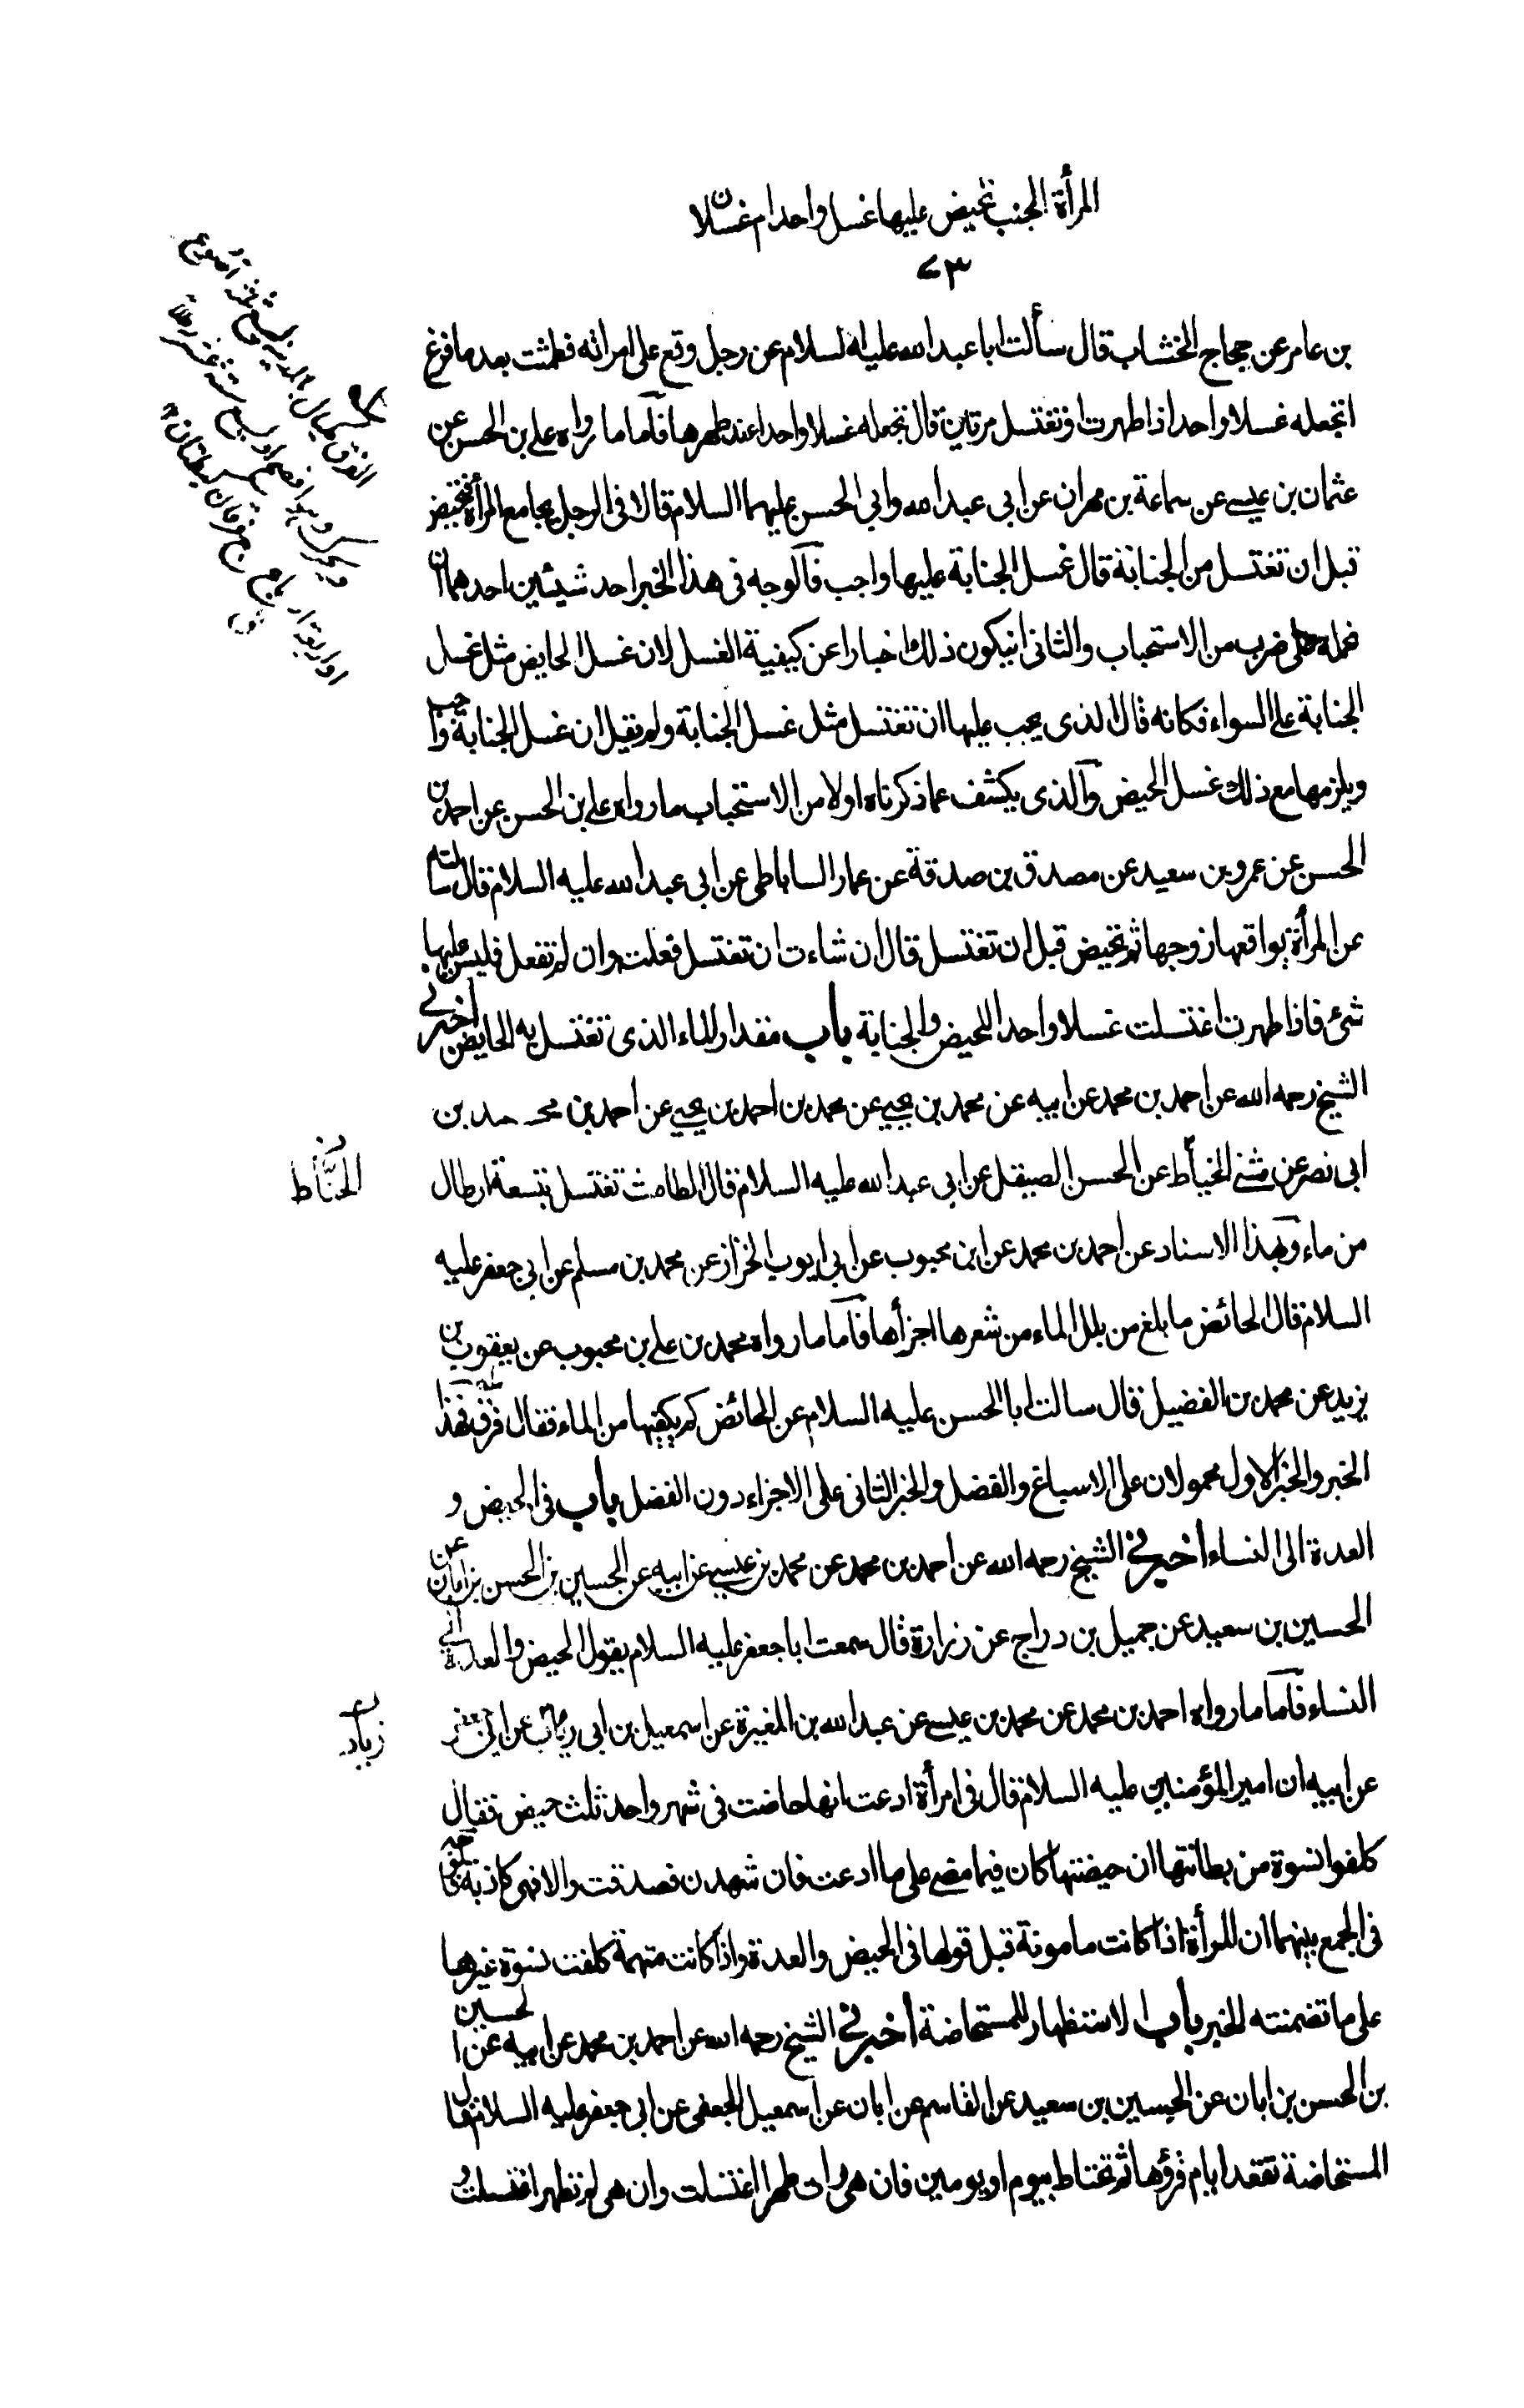 المرأة الجنب تحيض عليها غسل واحد ام غسلان
٧٣
بن عامر عن حجاج الخشاب قال سألت ابا عبد الله عليه السلام عن رجل وقع على امراته فطمثت بعد ما فرغ
اتجعله غسلا واحدا اذا طهرت او تغتسل مرتين قال تجعله غسلا واحدا عند طهرها فآما ما رواه علي بن الحسن عن
عثمان بن عيسى عن سماعة بن مهران عن ابي عبد الله وابي الحسن عليهما السلام قالا فى الرجل يجامع المرأة فتحيض
قبل ان تغتسل من الجنابة قال غسل الجنابة عليها واجب فآلوجه فى هذا الخبر احد شيئين احدهما ان
نحمله على ضرب من الاستحباب والثانى ان يكون ذلك اخبارا عن كيفية الغسل لان غسل الحايض مثل غسل
الجنابة على السواء فكانه قال الذى يجب عليها ان تغتسل مثل غسل الجنابة ولم يقل ان غسل الجنابة واجب
ويلزمها مع ذلك غسل الحيض وآلذى يكشف عما ذكرناه اولا من الاستحباب ما رواه علي بن الحسن عن احمد بن
الحسن عن عمرو بن سعيد عن مصدق بن صدقة عن عمار الساباطى عن ابى عبد الله عليه السلام قال سالته
عن المرأة يواقعها زوجها ثم تحيض قبل ان تغتسل قال ان شاءت ان تغتسل فعلت وان لم تفعل فليس عليها
شئ فاذا طهرت اغتسلت غسلا واحدا للحيض والجنابة باب مقدار الماء الذى تغتسل به الحايض اخبرنى
الشيخ رحمه الله عن احمد بن محمد عن ابيه عن محمد بن يحيى عن محمد بن احمد بن يحيى عن احمد بن محمد بن
ابى نصر عن مثنى الخياط عن الحسن الصيقل عن ابى عبد الله عليه السلام قال الطامث تغتسل بتسعة ارطال
الحنّاط
من ماء وبهذا الاسناد عن احمد بن محمد عن ابن محبوب عن ابى ايوب الخزاز عن محمد بن مسلم عن ابى جعفر عليه
السلام قال الحائض ما بلغ من بلل الماء من شعرها اجزأها فآما ما رواه محمد بن علي بن محبوب عن يعقوب بن
يزيد عن محمد بن الفضيل قال سالت ابا الحسن عليه السلام عن الحائض كم يكفيها من الماء فقال فرق فهذا
الخبر والخبر الاول محمولان على الاسباغ والفضل والخبر الثانى على الاجزاء دون الفضل باب فى الحيض و
العدة الى النساء اخبرنى الشيخ رحمه الله عن احمد بن محمد عن محمد بن عيسى عن ابيه عن الحسين بن الحسن بن ابان عن
الحسين بن سعيد عن جميل بن دراج عن زرارة قال سمعت ابا جعفر عليه السلام يقول الحيض والعدة الى
النساء فآما ما رواه احمد بن محمد عن محمد بن عيسى عن عبد الله بن المغيرة عن اسمعيل بن ابى زياد عن جعفر
زياد
عن ابيه ان امير المؤمنين عليه السلام قال فى امرأة ادعت انها حاضت فى شهر واحد ثلث حيض فقال
كلفوا نسوة من بطانتها ان حيضتها كان فيما مضى على ما ادعت فان شهدن فصدقت والا فهى كاذبة فالوجه
فى الجمع بينهما ان المرأة اذا كانت مامونة قبل قولها فى الحيض والعدة واذا كانت متهمة كلفت نسوة غيرها
على ما تضمنته الخبر باب الاستظهار للمستحاضة اخبرنى الشيخ رحمه الله عن احمد بن محمد عن ابيه عن الحسين
بن الحسن بن ابان عن الحسين بن سعيد عن القاسم عن ابان عن اسمعيل الجعفى عن ابى جعفر عليه السلام قال
المستحاضة تقعد ايام قرؤها ثم تحتاط بيوم او يومين فان هى رات طهرا اغتسلت وان هى لم تطهر اغتسلت و